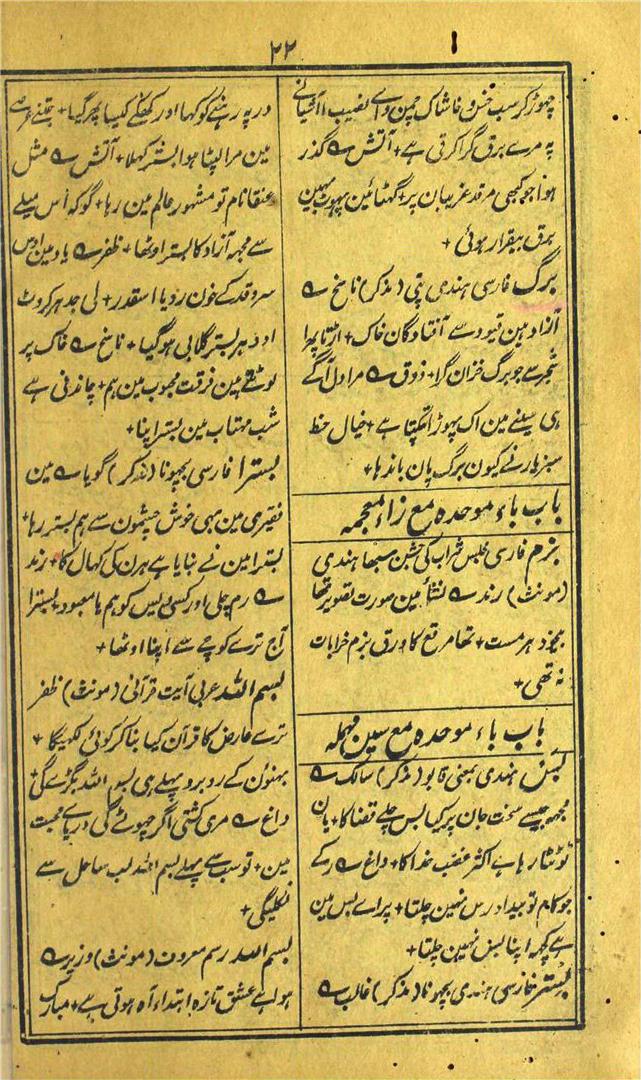 ۲۲
چھوڑ کر سب خس و خاشاک چمن وائے نصیب آشیانے
پہ مرے برق گرا کرتی ہے + آتش ے گذر
ہوا جو کبھی مرقد غریبان پر + گھٹائین
برق بیقرار ہوئی +
برگ فارسی ہندی پتی (مذکر) ناسخ ے
آزاد ہین قیود سے افتادگان خاک + اڑتا پھرا
شجر سے جو برگ خزان گرا + ذوق ے مرا دل آگے
ہی سینے مین اک پھوڑا پکتا ہے + خیال خط
سبز یار نے کیون برگ پان باندھا +
باب باء موحدہ مع زاء معجمہ
بزم فارسی مجلس شراب کی جشن سبھا ہندی
(مونث) رند ے نشأ مین صورت تصویر تھا
بیخود ہر مست + تھا مرقع کا ورق بزم خرابات
نہ تھی +
باب باء موحدہ مع سین مہملہ
بس ہندی بمعنی قابو (مذکر) سالک ے
مجھ جیسے سخت جان پر کیا بس چلے قضا کا + بان
ٹوٹتا رہا ہے اکثر غضب خدا کا + داغ ے رکے
جو کام تو بیداد رس نہین چلتا + پرائے بس مین
ہے کچھ اپنا بس نہین چلتا +
بستر فارسی ہندی بچھونا (مذکر) غالب ے
در پہ رہنے کو کہا اور کہکے کیسا پھر گیا + جتنے عرصے
مین مرا لپٹا ہوا بستر کھلا + آتش ے مثل
عنقا نام تو مشہور عالم مین رہا + گو کہ اس میلے
سے مجھ آزاد کا بستر اوٹھا + ظفر ے یاد مین اوس
سرو قد کے خون رویا اسقدر + لی جدھر کروٹ
اودھر بستر گلابی ہو گیا + ناسخ ے خاک پر
لوٹتے مین فرقت محبوب مین ہم + چاندنی ہے
شب مہتاب مین بستر اپنا +
بسترا فارسی بچھونا (مذکر) گویا ے مین
فقیری مین بھی خوش چشمون سے ہم بستر رہا +
بسترا مین نے بنایا ہے ہرن کی کھال کا + رند
ے رم چلی اور کسی دیس کو ہم یا معبود + بسترا
آج ترے کوچے سے اپنا اوٹھا +
بسم اللہ عربی آیت قرآنی (مونث) ظفر
ترے عارض کا قرآن کیا بنا کر کوئی لکھیگا +
بہنوں کے روبرو پہلے ہی بسم اللہ بگڑے گی
داغ ے مری کشتی اگر چھوٹے گی دریائے محبت
مین + تو سب سے پہلے بسم اللہ لب ساحل سے
نکلیگی +
بسم اللہ رسم معروف (مونث) وزیر ے
ہوائے عشق تازہ ابتداء آہ ہوتی ہے + مبارک